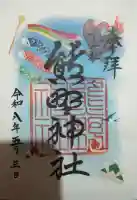 奉拝
熊野神社
令和八年五月三日